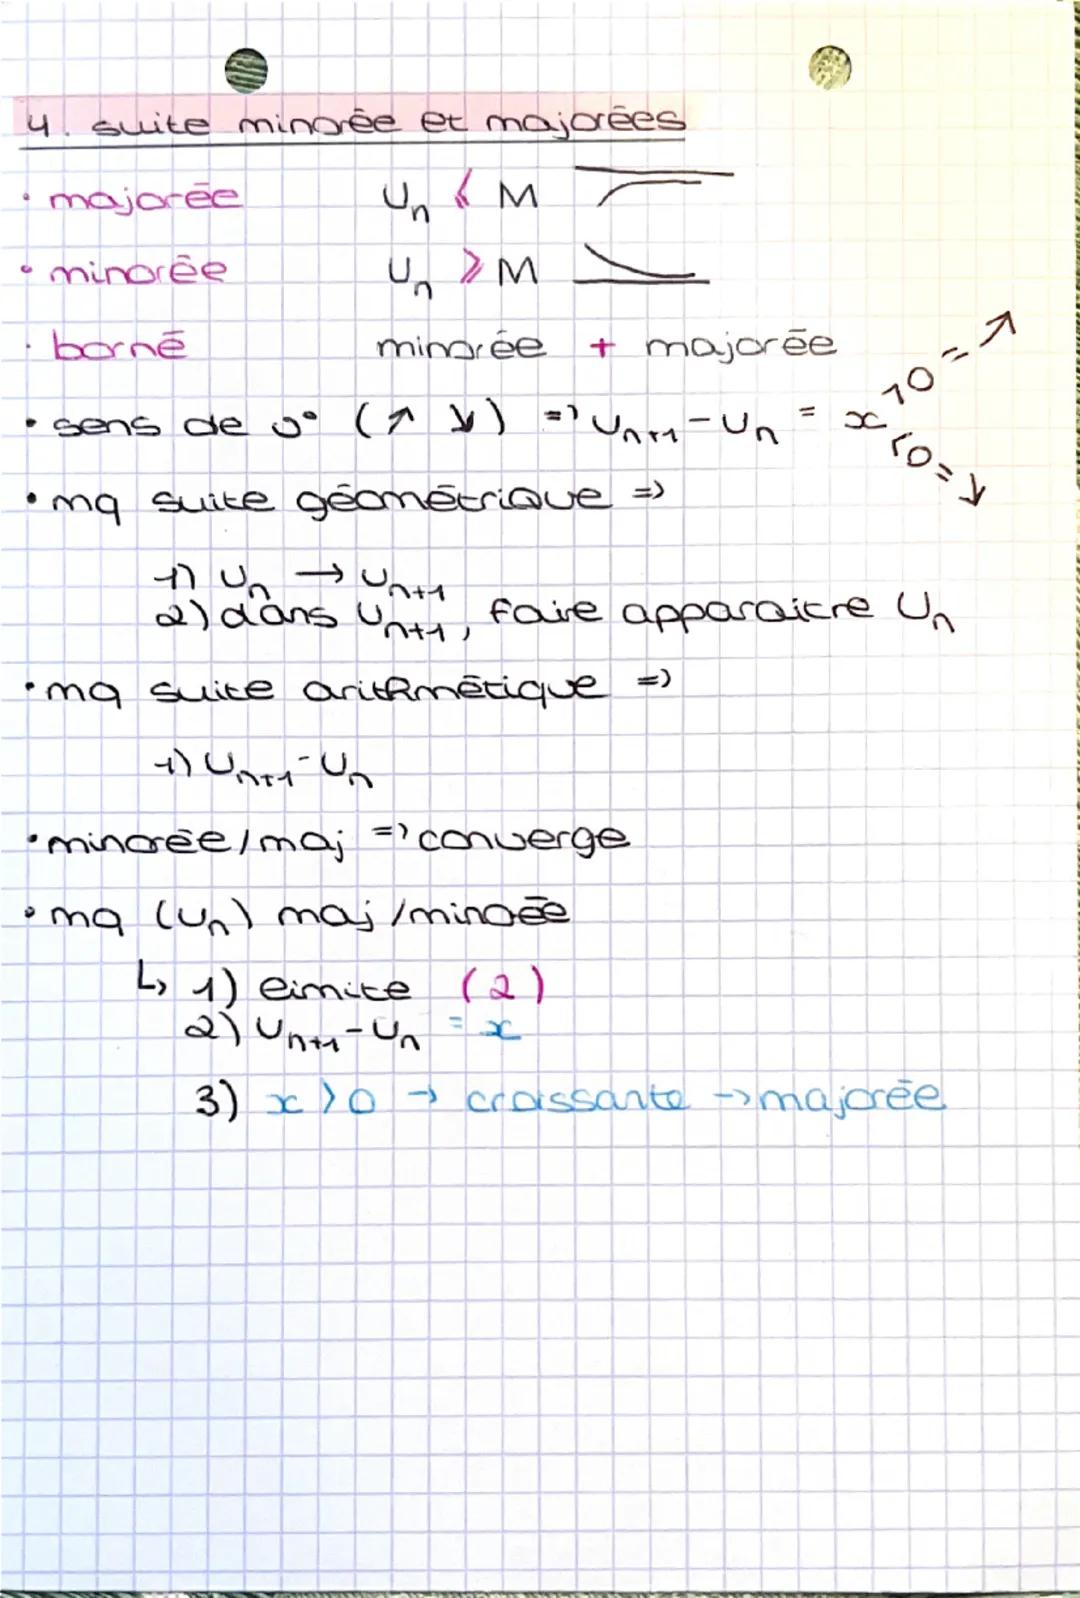 4. suite minorée et majorées
• majorée Un ≤ M
• minorée Un ≥ M
• borné minorée + majorée
• sens de v° (↗ ↘) => Un+1 - Un = x >0 = ↗
<0 = ↘
• mq suite géométrique =>
1) Un → Un+1
2) dans Un+1, faire apparaitre Un
• mq suite arithmétique =>
1) Un+1 - Un
• minorée/maj => converge
• mq (Un) maj/minoée
↳ 1) limite (2)
2) Un+1 - Un = x
3) x > 0 → croissante → majorée